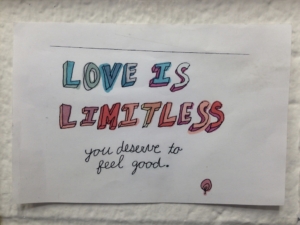 LOVE IS
LIMITLESS
you deserve to
feel good.